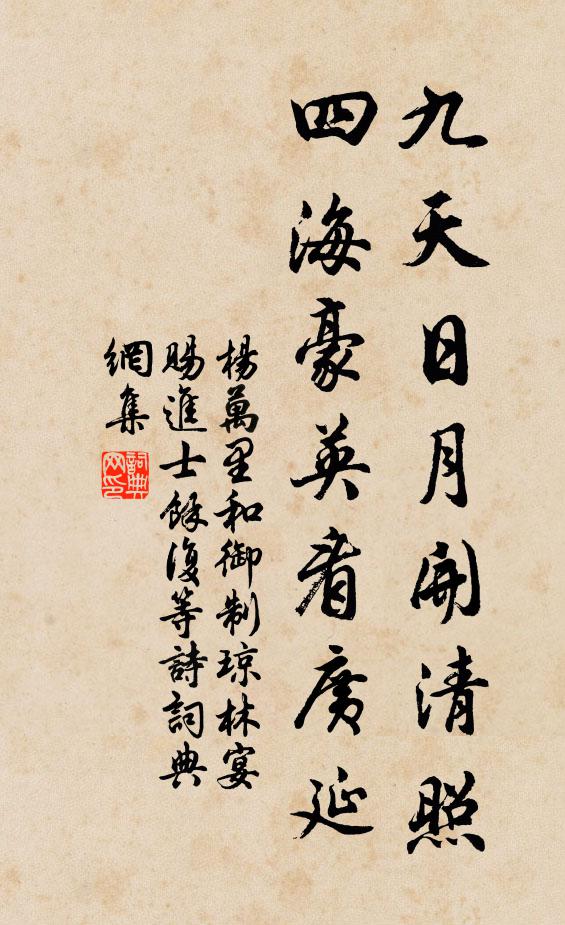 九天日月開清照
四海豪英看廣延
楊萬里和御制琼林宴
賜進士餘復等詩詞典
網集
詞典网印